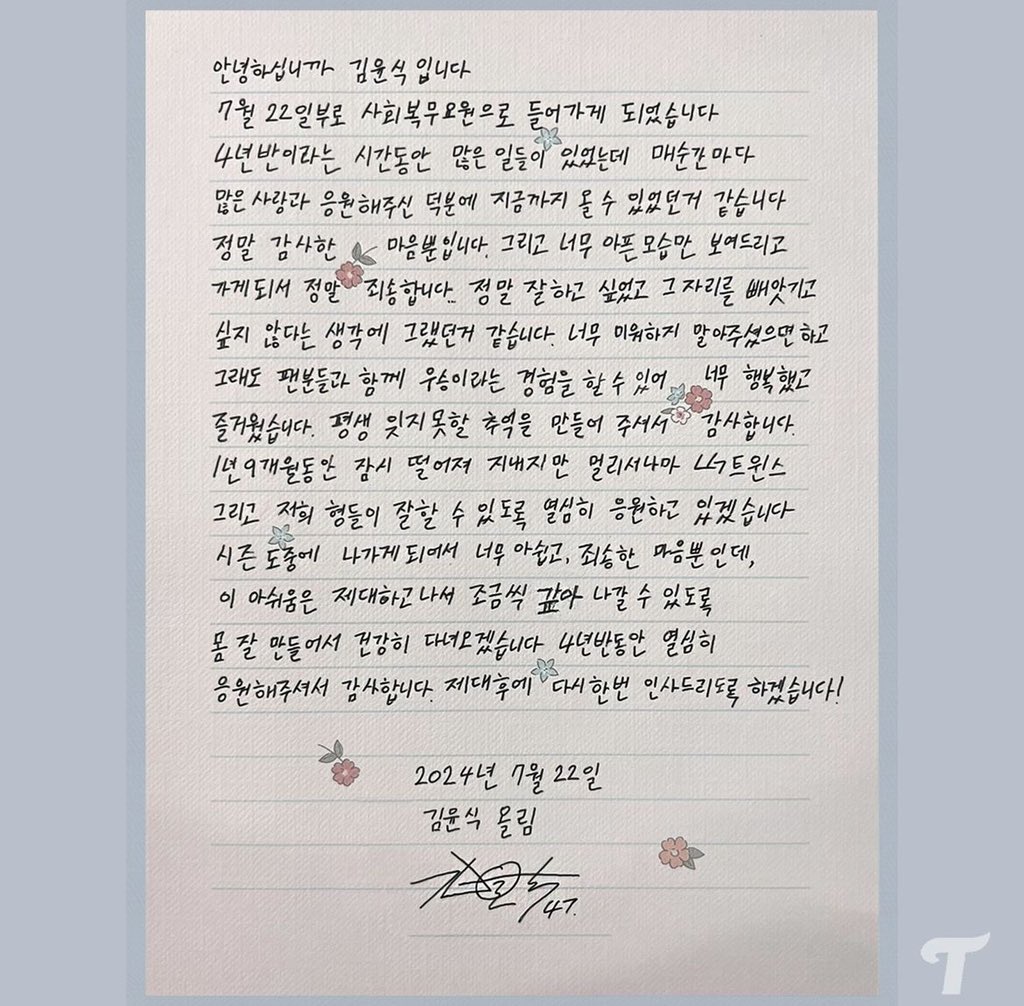 안녕하십니까 김윤식 입니다
7월 22일부로 사회복무요원으로 들어가게 되었습니다
4년반이라는 시간동안 많은 일들이 있었는데 매순간마다
많은 사랑과 응원해주신 덕분에 지금까지 올 수 있었던거 같습니다
정말 감사한 마음뿐입니다. 그리고 너무 아픈 모습만 보여드리고
가게되서 정말 죄송합니다.. 정말 잘하고 싶었고 그 자리를 빼앗기고
싶지 않다는 생각에 그랬던거 같습니다. 너무 미워하지 말아주셨으면 하고
그래도 팬분들과 함께 우승이라는 경험을 할 수 있어 너무 행복했고
즐거웠습니다. 평생 잊지못할 추억을 만들어 주셔서 감사합니다.
1년 9개월동안 잠시 떨어져 지내지만 멀리서나마 LG트윈스
그리고 저희 형들이 잘할 수 있도록 열심히 응원하고 있겠습니다
시즌 도중에 나가게되어서 너무 아쉽고, 죄송한 마음뿐인데,
이 아쉬움은 제대하고나서 조금씩 갚아 나갈 수 있도록
몸 잘 만들어서 건강히 다녀오겠습니다 4년반동안 열심히
응원해주셔서 감사합니다. 제대후에 다시한번 인사드리도록 하겠습니다!
2024년 7월 22일
김윤식 올림
47.
T